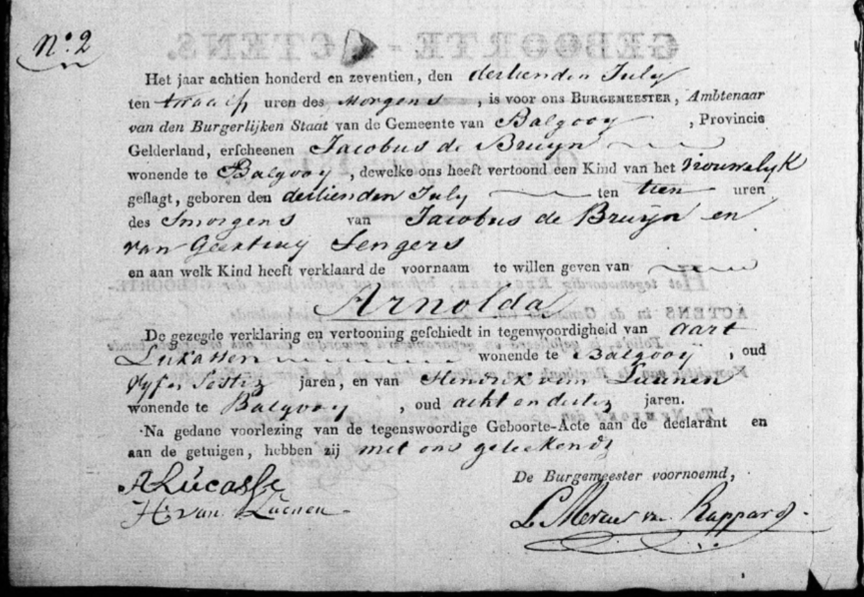 No. 2
GEBOORTE-ACTENS.
Het jaar achtien honderd en zeventien, den dertienden July
ten twaalf uren des morgens, is voor ons BURGEMEESTER, Ambtenaar
van den Burgerlijken Staat van de Gemeente van Balgooy, Provincie
Gelderland, erscheenen Jacobus de Bruijn
wonende te Balgooy, dewelke ons heeft vertoond een Kind van het vrouwelyk
geslagt, geboren den dertienden July ten tien uren
des Smorgens van Jacobus de Bruijn en
van Geertruy Sengers
en aan welk Kind heeft verklaard de voornaam te willen geven van
Arnolda
De gezegde verklaring en vertooning geschiedt in tegenwoordigheid van Aart
Lukassen wonende te Balgooy, oud
vyf en sestig jaren, en van Hendrik van Luenen
wonende te Balgooy, oud acht en dertig jaren.
Na gedane voorlezing van de tegenswoordige Geboorte-Acte aan de declarant en
aan de getuigen, hebben zij met ons geteekend
De Burgemeester voornoemd,
A Lucasse
H. van Luenen
van Rappard